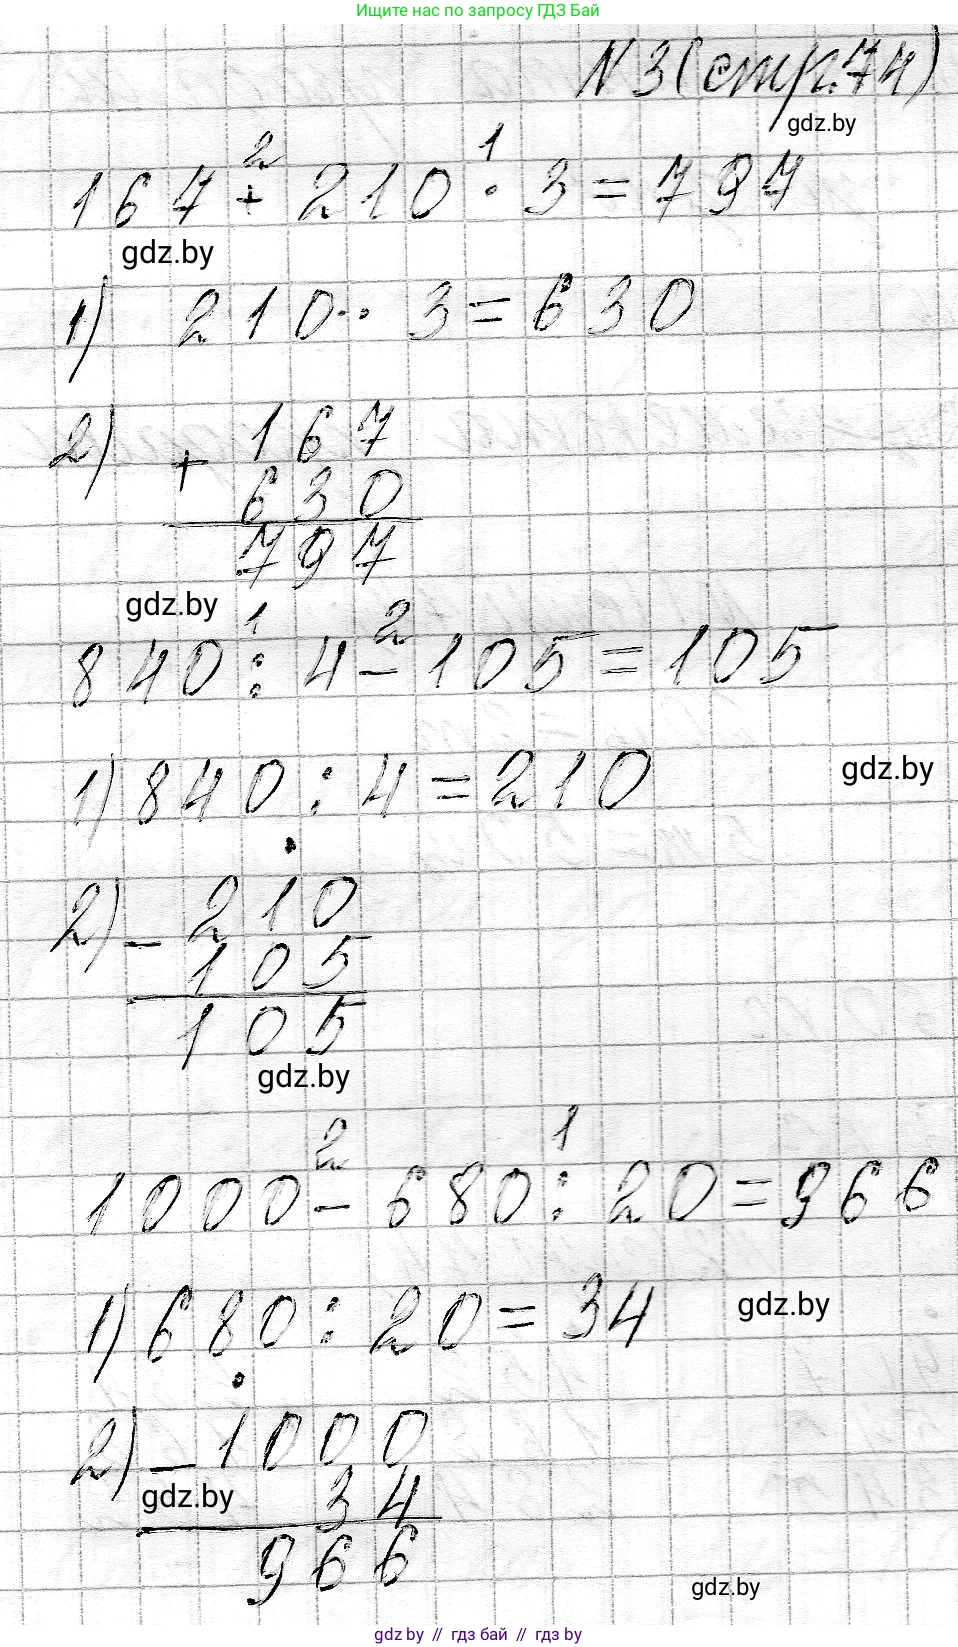 Ищите нас по запросу ГДЗ Бай
N 3 (стр. 74)
gdz.by
2 1
167 + 210 · 3 = 797
gdz.by
1) 210 · 3 = 630
2) + 167
630
797
gdz.by
1 2
840 : 4 - 105 = 105
1) 840 : 4 = 210
gdz.by
2) - 210
105
105
gdz.by
2 1
1000 - 680 : 20 = 966
1) 680 : 20 = 34
gdz.by
2) - 1000
gdz.by
34
966
gdz.by
gdz by // гдз бай // gdz by